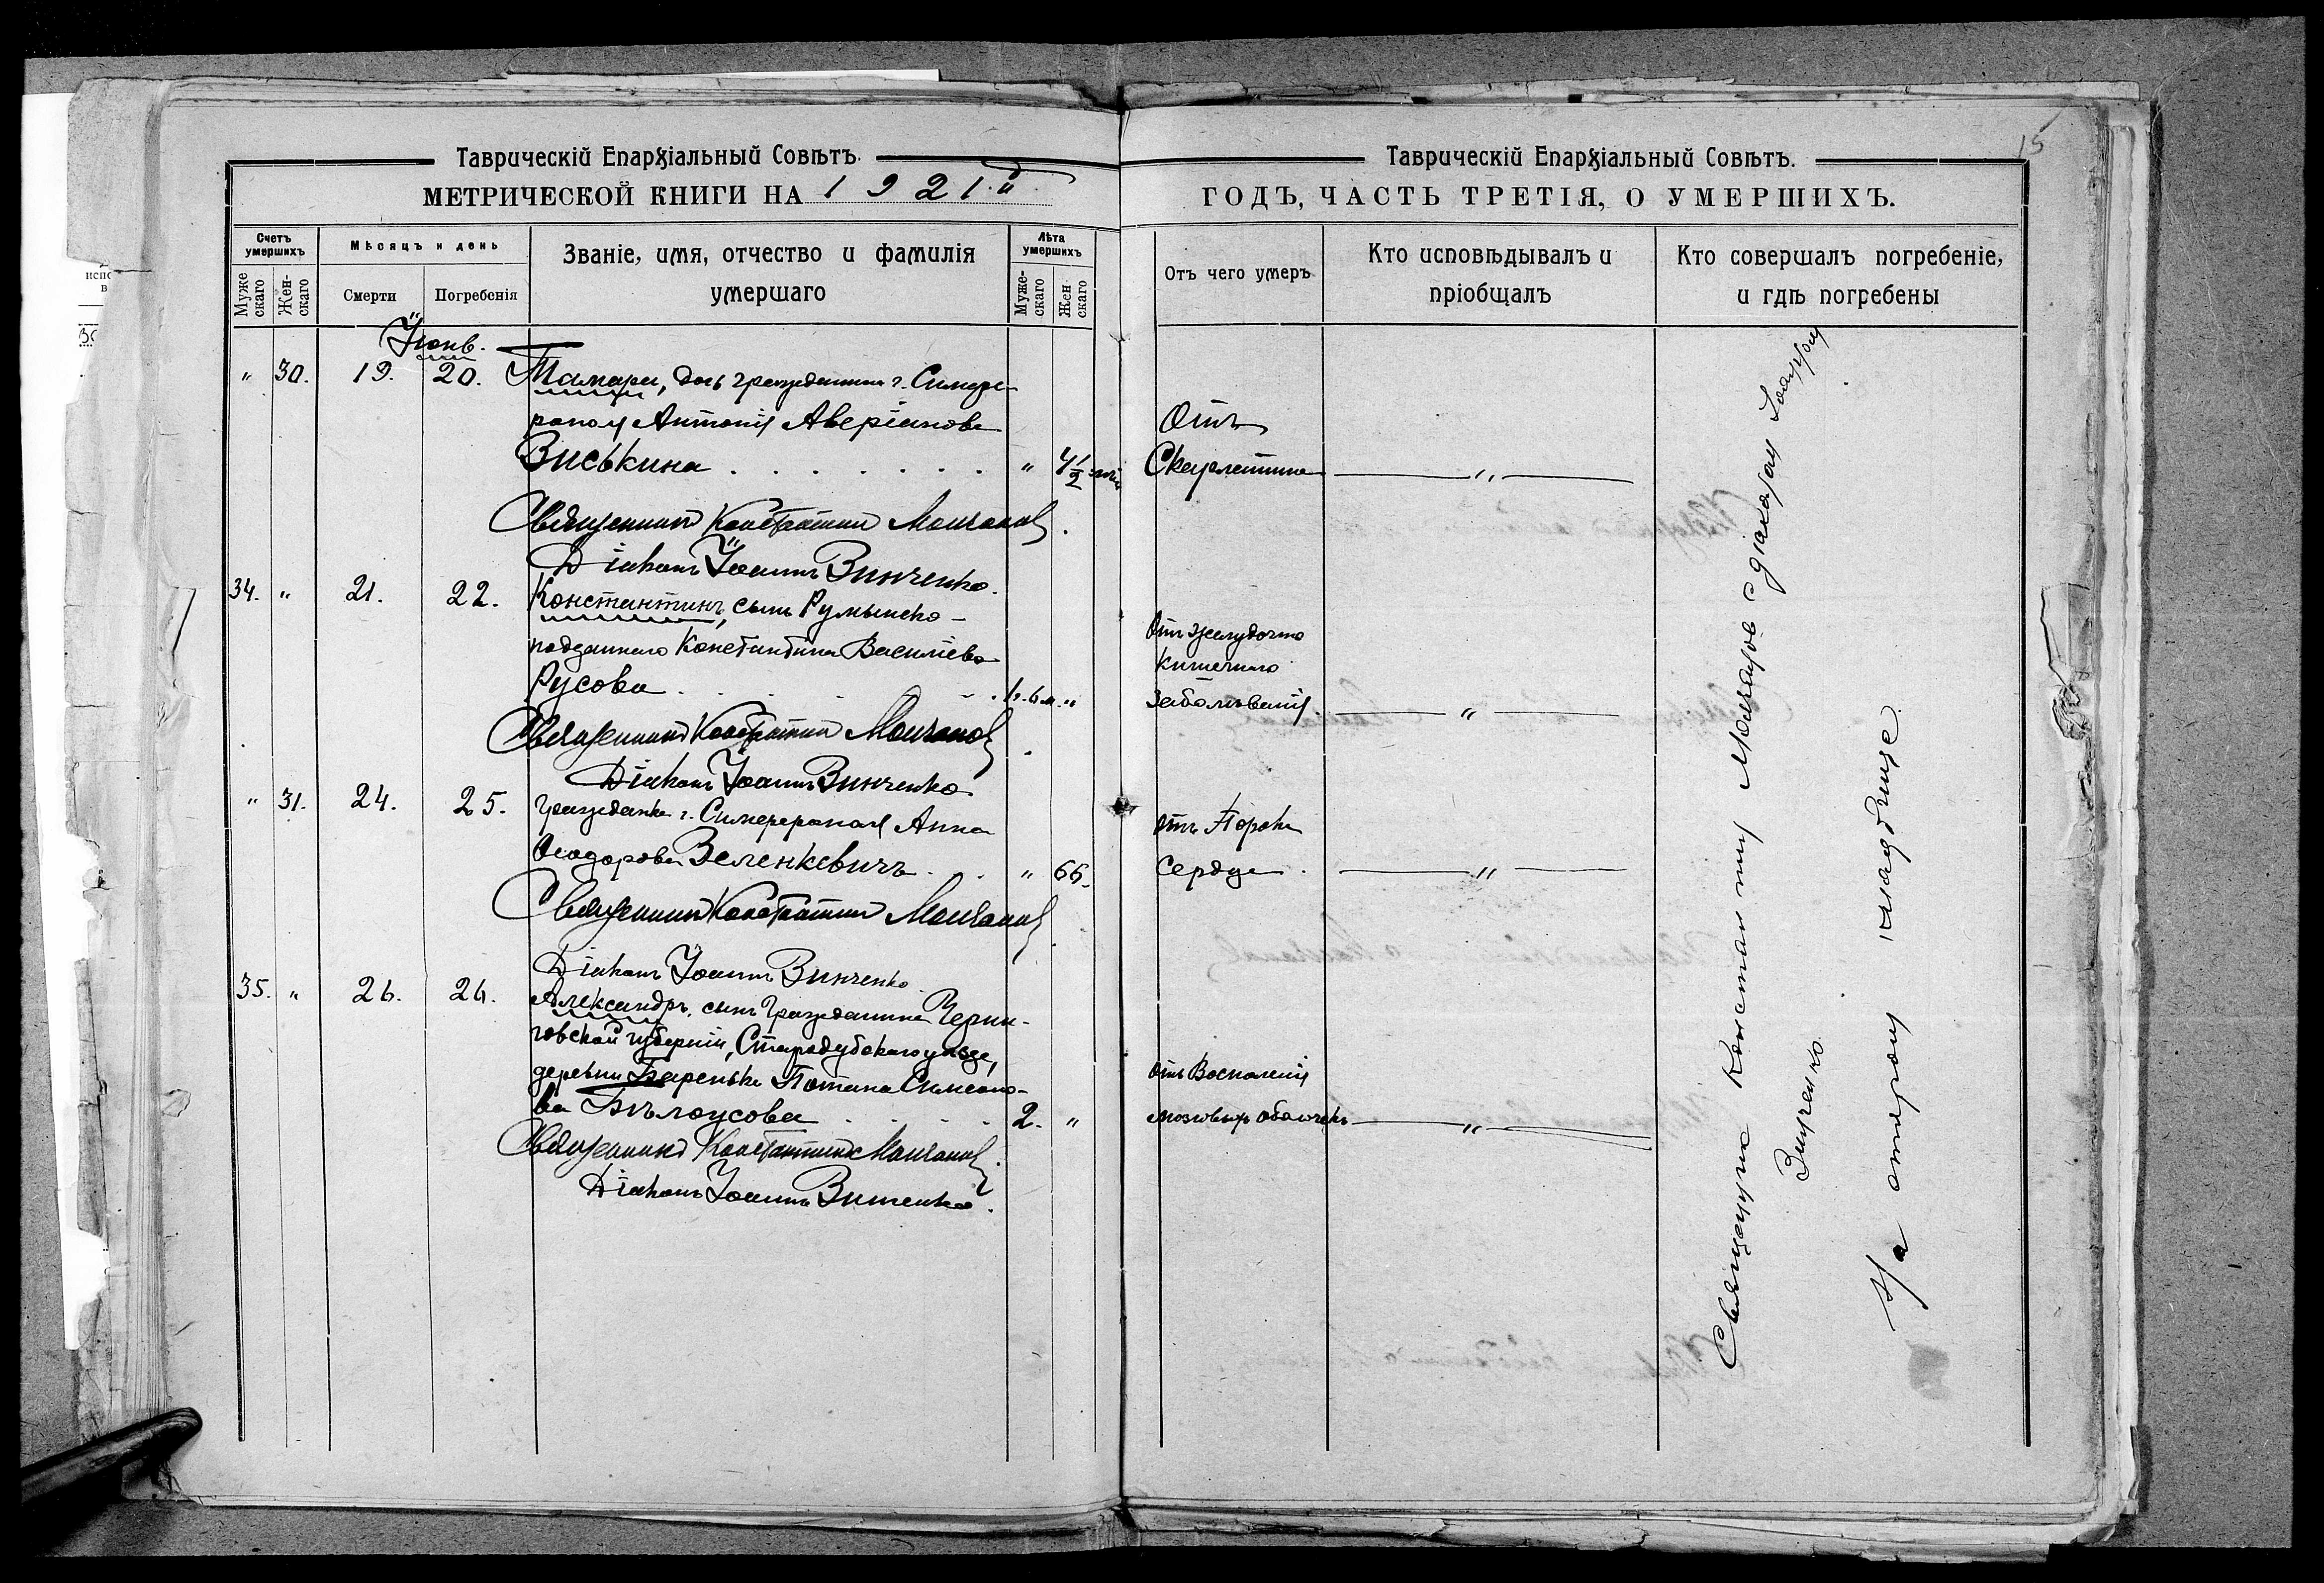 Таврическій Епархіальный Совѣтъ.
МЕТРИЧЕСКОЙ КНИГИ НА 1921й
Счетъ умершихъ
Мѣсяцъ и день
Званіе, имя, отчество и фамилія умершаго
Лѣта умершихъ
Муже скаго
Жен- скаго
Смерти
Погребенія
Муже- скаго
Жен- скаго
Іюнь.
" 30. 19. 20. Тамара, дочь гражданина г. Симфе-
рополя Антонія Аверіанова
Виськина . . . . . . . " 4½
Священникъ Константинъ Молчановъ.
Діаконъ Іоаннъ Винченко.
34. " 21. 22. Константинъ, сынъ Румынско-
подданнаго Константина Василіева
Русова . . . 1 г. 6 м. "
Священникъ Константинъ Молчановъ.
Діаконъ Іоаннъ Винченко
" 31. 24. 25. Гражданка г. Симферополя Анна
Ѳеодорова Зеленкевичъ . . " 66.
Священникъ Константинъ Молчановъ
Діаконъ Іоаннъ Винченко
35. " 26. 26. Александръ, сынъ Гражданина Черни-
говской губерніи, Стародубскаго уѣзда,
деревни Потапа Симеоно-
ва Бѣлоусова . . . . 2. "
Священникъ Константинъ Молчановъ.
Діаконъ Іоаннъ Винченко.
15
Таврическій Епархіальный Совѣтъ.
ГОДЪ, ЧАСТЬ ТРЕТІЯ, О УМЕРШИХЪ.
Отъ чего умеръ
Кто исповѣдывалъ и пріобщалъ
Кто совершалъ погребеніе, и гдѣ погребены
Отъ
Скарлатины — " —
Отъ желудочно
кишечнаго
заболѣванія — " —
Отъ Порока
Сердца. — " —
Отъ Воспаленія
мозговыхъ оболочекъ — " —
Священникъ Константинъ Молчановъ с діакономъ Іоанномъ
Винченко.
На старомъ кладбище.